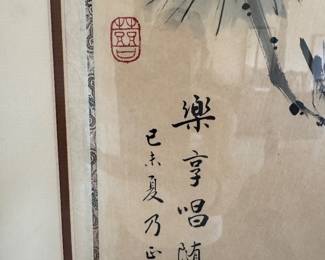 樂享唱随
己未夏乃正